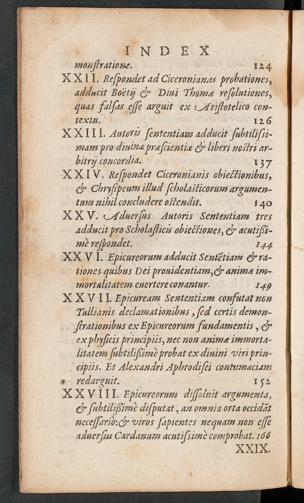 INDEX
monſtratione. 124
XXII. Reſpondet ad Ciceronianas probationes,
adducit Boëtij & Diui Thomæ reſolutiones,
quas falſas eſſe arguit ex Ariſtotelico con-
textu. 126
XXIII. Autoris ſententiam adducit ſubtiliſſi-
mam pro diuina præſcientia & liberi noſtri ar-
bitrij concordia. 137
XXIV. Reſpondet Ciceronianis obiectionibus,
& Chryſippeum illud ſcholaſticorum argumen-
tum nihil concludere oſtendit. 140
XXV. Aduerſus Autoris Sententiam tres
adducit pro Scholaſticis obiectiones, & acutiſſi-
mè reſpondet. 144
XXVI. Epicureorum adducit Sentẽtiam & ra-
tiones quibus Dei prouidentiam, & animæ im-
mortalitatem euertere conantur. 149
XXVII. Epicuream Sententiam confutat non
Tullianis declamationibus, ſed certis demon-
ſtrationibus ex Epicureorum fundamentis, &
ex phyſicis principiis, nec non animæ immorta-
litatem ſubtiliſſimè probat ex diuini viri prin-
cipiis. Et Alexandri Aphrodiſei contumaciam
redarguit. 152
XXVIII. Epicureorum diſſoluit argumenta,
& ſubtiliſſimè diſputat, an omnia orta occidãt
neceſſariò: & viros ſapientes nequam non eſſe
aduerſus Cardanum acutiſſimè comprobat. 166
XXIX.